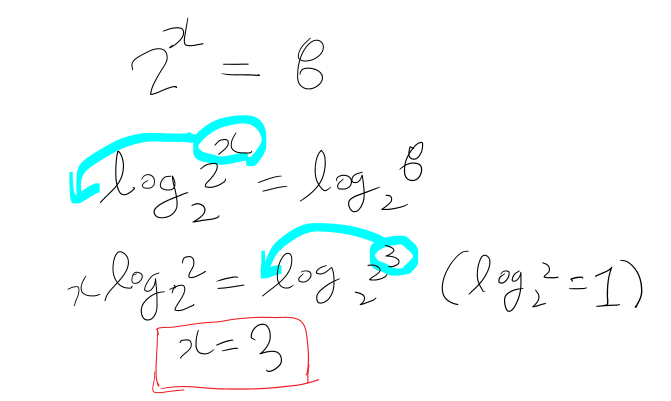 2^x = 8
log_2 2^x = log_2 8
x log_2 2 = log_2 2^3 (log_2 2 = 1)
x = 3